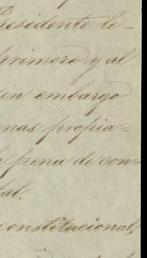 Presidente le-
primero y al
sin embargo
nas propia=
pena de con-
tal.
constitucional,